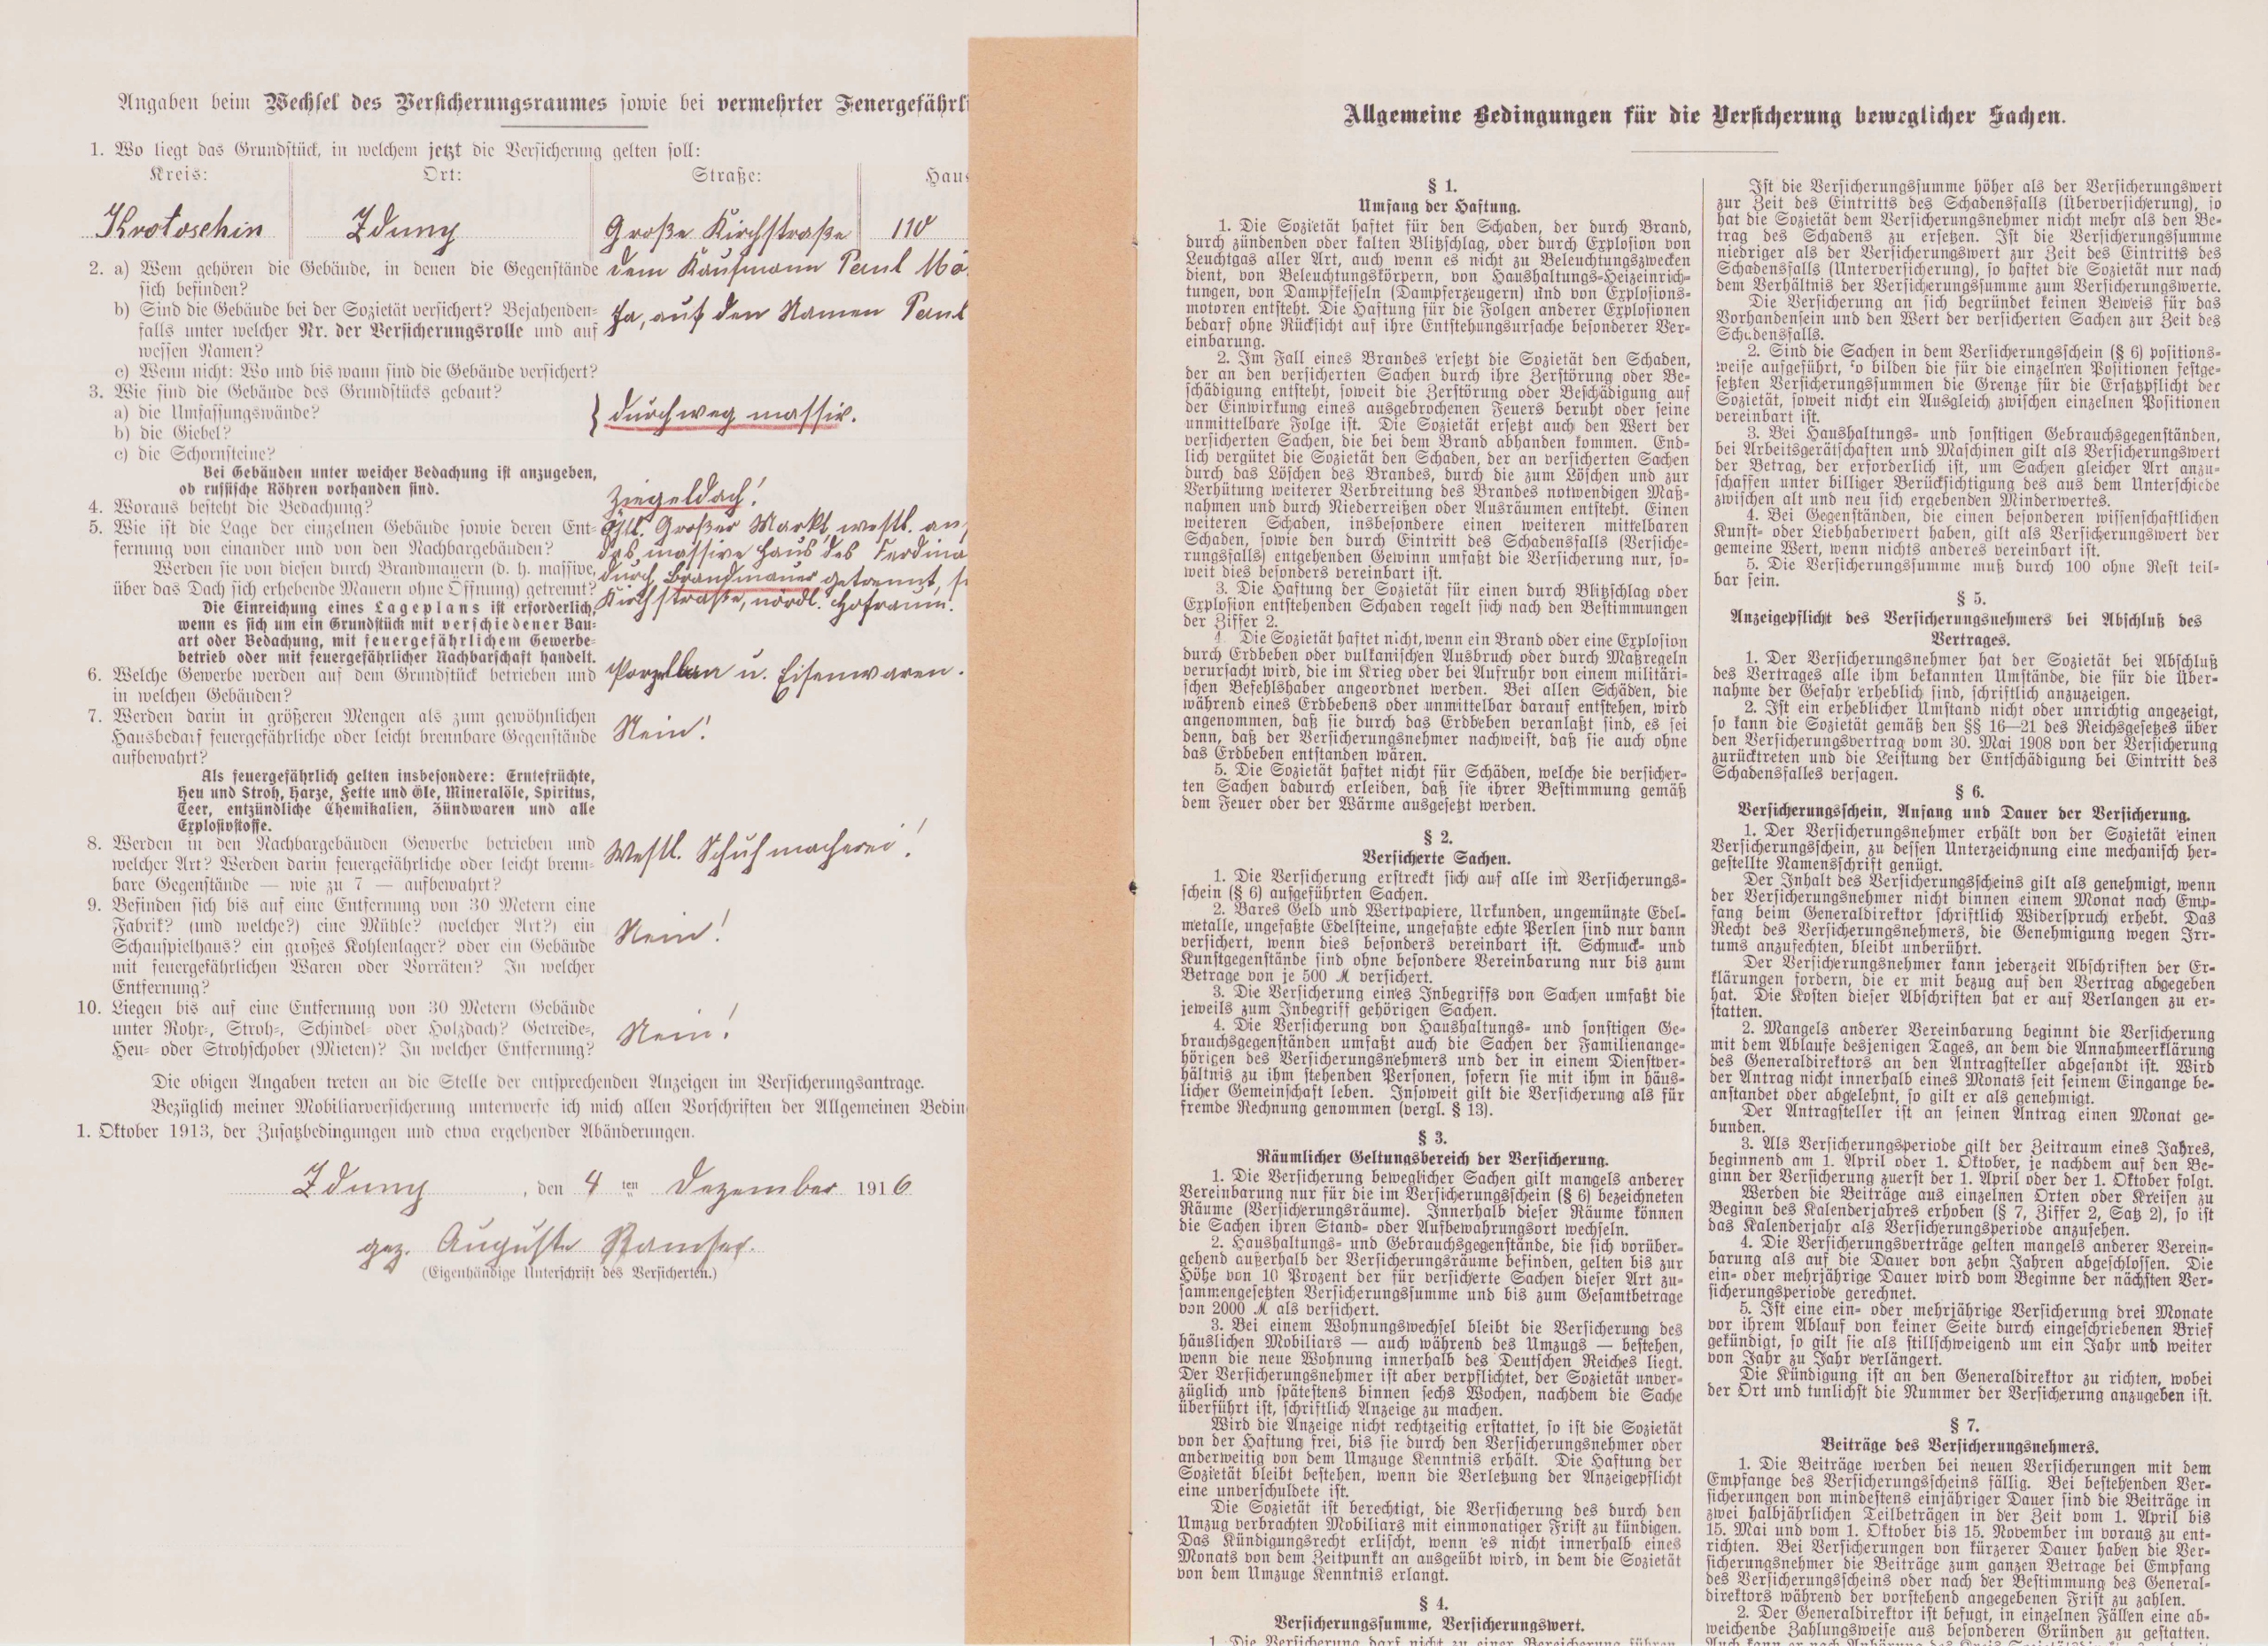 Angaben beim Wechsel des Versicherungsraumes sowie bei vermehrter Feuergefährli
1. Wo liegt das Grundstück, in welchem jetzt die Versicherung gelten soll:
Kreis: Ort: Straße: Haus
Krotoschin Zduny Große Kirchstraße 110
2. a) Wem gehören die Gebäude, in denen die Gegenstände
sich befinden?
dem Kaufmann Paul
b) Sind die Gebäude bei der Sozietät versichert? Bejahenden-
falls unter welcher Nr. der Versicherungsrolle und auf
wessen Namen?
Ja, auf den Namen Paul
c) Wenn nicht: Wo und bis wann sind die Gebäude versichert?
3. Wie sind die Gebäude des Grundstücks gebaut?
a) die Umfassungswände?
b) die Giebel?
c) die Schornsteine?
durchweg massiv.
Bei Gebäuden unter weicher Bedachung ist anzugeben,
ob russische Röhren vorhanden sind.
4. Woraus besteht die Bedachung?
Ziegeldach!
5. Wie ist die Lage der einzelnen Gebäude sowie deren Ent-
fernung von einander und von den Nachbargebäuden?
Werden sie von diesen durch Brandmauern (d. h. massive,
über das Dach sich erhebende Mauern ohne Öffnung) getrennt?
Östl. Großer Markt, westl. an
das massive Haus des Ferdina
durch Brandmauer getrennt, s
Kirchstraße, nördl. Hofraum.
Die Einreichung eines Lageplans ist erforderlich,
wenn es sich um ein Grundstück mit verschiedener Bau-
art oder Bedachung, mit feuergefährlichem Gewerbe-
betrieb oder mit feuergefährlicher Nachbarschaft handelt.
6. Welche Gewerbe werden auf dem Grundstück betrieben und
in welchen Gebäuden?
Porzellan u. Eisenwaren.
7. Werden darin in größeren Mengen als zum gewöhnlichen
Hausbedarf feuergefährliche oder leicht brennbare Gegenstände
aufbewahrt?
Nein!
Als feuergefährlich gelten insbesondere: Erntefrüchte,
Heu und Stroh, Harze, Fette und Öle, Mineralöle, Spiritus,
Teer, entzündliche Chemikalien, Zündwaren und alle
Explosivstoffe.
8. Werden in den Nachbargebäuden Gewerbe betrieben und
welcher Art? Werden darin feuergefährliche oder leicht brenn-
bare Gegenstände — wie zu 7 — aufbewahrt?
Westl. Schuhmacherei!
9. Befinden sich bis auf eine Entfernung von 30 Metern eine
Fabrik? (und welche?) eine Mühle? (welcher Art?) ein
Schauspielhaus? ein großes Kohlenlager? oder ein Gebäude
mit feuergefährlichen Waren oder Vorräten? In welcher
Entfernung?
Nein!
10. Liegen bis auf eine Entfernung von 30 Metern Gebäude
unter Rohr-, Stroh-, Schindel- oder Holzdach? Getreide-,
Heu- oder Strohschober (Mieten)? In welcher Entfernung?
Nein!
Die obigen Angaben treten an die Stelle der entsprechenden Anzeigen im Versicherungsantrage.
Bezüglich meiner Mobiliarversicherung unterwerfe ich mich allen Vorschriften der Allgemeinen Bedin
1. Oktober 1913, der Zusatzbedingungen und etwa ergehender Abänderungen.
Zduny, den 4ten Dezember 1916
gez. Auguste
(Eigenhändige Unterschrift des Versicherten.)
Allgemeine Bedingungen für die Versicherung beweglicher Sachen.
§ 1.
Umfang der Haftung.
1. Die Sozietät haftet für den Schaden, der durch Brand,
durch zündenden oder kalten Blitzschlag, oder durch Explosion von
Leuchtgas aller Art, auch wenn es nicht zu Beleuchtungszwecken
dient, von Beleuchtungskörpern, von Haushaltungs-Heizeinrich-
tungen, von Dampfkesseln (Dampferzeugern) und von Explosions-
motoren entsteht. Die Haftung für die Folgen anderer Explosionen
bedarf ohne Rücksicht auf ihre Entstehungsursache besonderer Ver-
einbarung.
2. Im Fall eines Brandes ersetzt die Sozietät den Schaden,
der an den versicherten Sachen durch ihre Zerstörung oder Be-
schädigung entsteht, soweit die Zerstörung oder Beschädigung auf
der Einwirkung eines ausgebrochenen Feuers beruht oder seine
unmittelbare Folge ist. Die Sozietät ersetzt auch den Wert der
versicherten Sachen, die bei dem Brand abhanden kommen. End-
lich vergütet die Sozietät den Schaden, der an versicherten Sachen
durch das Löschen des Brandes, durch die zum Löschen und zur
Verhütung weiterer Verbreitung des Brandes notwendigen Maß-
nahmen und durch Niederreißen oder Ausräumen entsteht. Einen
weiteren Schaden, insbesondere einen weiteren mittelbaren
Schaden, sowie den durch Eintritt des Schadensfalls (Versiche-
rungsfalls) entgehenden Gewinn umfaßt die Versicherung nur, so-
weit dies besonders vereinbart ist.
3. Die Haftung der Sozietät für einen durch Blitzschlag oder
Explosion entstehenden Schaden regelt sich nach den Bestimmungen
der Ziffer 2.
4. Die Sozietät haftet nicht, wenn ein Brand oder eine Explosion
durch Erdbeben oder vulkanischen Ausbruch oder durch Maßregeln
verursacht wird, die im Krieg oder bei Aufruhr von einem militäri-
schen Befehlshaber angeordnet werden. Bei allen Schäden, die
während eines Erdbebens oder unmittelbar darauf entstehen, wird
angenommen, daß sie durch das Erdbeben veranlaßt sind, es sei
denn, daß der Versicherungsnehmer nachweist, daß sie auch ohne
das Erdbeben entstanden wären.
5. Die Sozietät haftet nicht für Schäden, welche die versicher-
ten Sachen dadurch erleiden, daß sie ihrer Bestimmung gemäß
dem Feuer oder der Wärme ausgesetzt werden.
§ 2.
Versicherte Sachen.
1. Die Versicherung erstreckt sich auf alle im Versicherungs-
schein (§ 6) aufgeführten Sachen.
2. Bares Geld und Wertpapiere, Urkunden, ungemünzte Edel-
metalle, ungefaßte Edelsteine, ungefaßte echte Perlen sind nur dann
versichert, wenn dies besonders vereinbart ist. Schmuck- und
Kunstgegenstände sind ohne besondere Vereinbarung nur bis zum
Betrage von je 500 M versichert.
3. Die Versicherung eines Inbegriffs von Sachen umfaßt die
jeweils zum Inbegriff gehörigen Sachen.
4. Die Versicherung von Haushaltungs- und sonstigen Ge-
brauchsgegenständen umfaßt auch die Sachen der Familienange-
hörigen des Versicherungsnehmers und der in einem Dienstver-
hältnis zu ihm stehenden Personen, sofern sie mit ihm in häus-
licher Gemeinschaft leben. Insoweit gilt die Versicherung als für
fremde Rechnung genommen (vergl. § 13).
§ 3.
Räumlicher Geltungsbereich der Versicherung.
1. Die Versicherung beweglicher Sachen gilt mangels anderer
Vereinbarung nur für die im Versicherungsschein (§ 6) bezeichneten
Räume (Versicherungsräume). Innerhalb dieser Räume können
die Sachen ihren Stand- oder Aufbewahrungsort wechseln.
2. Haushaltungs- und Gebrauchsgegenstände, die sich vorüber-
gehend außerhalb der Versicherungsräume befinden, gelten bis zur
Höhe von 10 Prozent der für versicherte Sachen dieser Art zu-
sammengesetzten Versicherungssumme und bis zum Gesamtbetrage
von 2000 M als versichert.
3. Bei einem Wohnungswechsel bleibt die Versicherung des
häuslichen Mobiliars — auch während des Umzugs — bestehen,
wenn die neue Wohnung innerhalb des Deutschen Reiches liegt.
Der Versicherungsnehmer ist aber verpflichtet, der Sozietät unver-
züglich und spätestens binnen sechs Wochen, nachdem die Sache
überführt ist, schriftlich Anzeige zu machen.
Wird die Anzeige nicht rechtzeitig erstattet, so ist die Sozietät
von der Haftung frei, bis sie durch den Versicherungsnehmer oder
anderweitig von dem Umzuge Kenntnis erhält. Die Haftung der
Sozietät bleibt bestehen, wenn die Verletzung der Anzeigepflicht
eine unverschuldete ist.
Die Sozietät ist berechtigt, die Versicherung des durch den
Umzug verbrachten Mobiliars mit einmonatiger Frist zu kündigen.
Das Kündigungsrecht erlischt, wenn es nicht innerhalb eines
Monats von dem Zeitpunkt an ausgeübt wird, in dem die Sozietät
von dem Umzuge Kenntnis erlangt.
§ 4.
Versicherungssumme, Versicherungswert.
1. Die Versicherung darf nicht zu einer Bereicherung führen.
Ist die Versicherungssumme höher als der Versicherungswert
zur Zeit des Eintritts des Schadensfalls (Überversicherung), so
hat die Sozietät dem Versicherungsnehmer nicht mehr als den Be-
trag des Schadens zu ersetzen. Ist die Versicherungssumme
niedriger als der Versicherungswert zur Zeit des Eintritts des
Schadensfalls (Unterversicherung), so haftet die Sozietät nur nach
dem Verhältnis der Versicherungssumme zum Versicherungswerte.
Die Versicherung an sich begründet keinen Beweis für das
Vorhandensein und den Wert der versicherten Sachen zur Zeit des
Schadensfalls.
2. Sind die Sachen in dem Versicherungsschein (§ 6) positions-
weise aufgeführt, so bilden die für die einzelnen Positionen festge-
setzten Versicherungssummen die Grenze für die Ersatzpflicht der
Sozietät, soweit nicht ein Ausgleich zwischen einzelnen Positionen
vereinbart ist.
3. Bei Haushaltungs- und sonstigen Gebrauchsgegenständen,
bei Arbeitsgerätschaften und Maschinen gilt als Versicherungswert
der Betrag, der erforderlich ist, um Sachen gleicher Art anzu-
schaffen unter billiger Berücksichtigung des aus dem Unterschiede
zwischen alt und neu sich ergebenden Minderwertes.
4. Bei Gegenständen, die einen besonderen wissenschaftlichen
Kunst- oder Liebhaberwert haben, gilt als Versicherungswert der
gemeine Wert, wenn nichts anderes vereinbart ist.
5. Die Versicherungssumme muß durch 100 ohne Rest teil-
bar sein.
§ 5.
Anzeigepflicht des Versicherungsnehmers bei Abschluß des
Vertrages.
1. Der Versicherungsnehmer hat der Sozietät bei Abschluß
des Vertrages alle ihm bekannten Umstände, die für die Über-
nahme der Gefahr erheblich sind, schriftlich anzuzeigen.
2. Ist ein erheblicher Umstand nicht oder unrichtig angezeigt,
so kann die Sozietät gemäß den §§ 16—21 des Reichsgesetzes über
den Versicherungsvertrag vom 30. Mai 1908 von der Versicherung
zurücktreten und die Leistung der Entschädigung bei Eintritt des
Schadensfalles versagen.
§ 6.
Versicherungsschein, Anfang und Dauer der Versicherung.
1. Der Versicherungsnehmer erhält von der Sozietät einen
Versicherungsschein, zu dessen Unterzeichnung eine mechanisch her-
gestellte Namensschrift genügt.
Der Inhalt des Versicherungsscheins gilt als genehmigt, wenn
der Versicherungsnehmer nicht binnen einem Monat nach Emp-
fang beim Generaldirektor schriftlich Widerspruch erhebt. Das
Recht des Versicherungsnehmers, die Genehmigung wegen Irr-
tums anzufechten, bleibt unberührt.
Der Versicherungsnehmer kann jederzeit Abschriften der Er-
klärungen fordern, die er mit bezug auf den Vertrag abgegeben
hat. Die Kosten dieser Abschriften hat er auf Verlangen zu er-
statten.
2. Mangels anderer Vereinbarung beginnt die Versicherung
mit dem Ablaufe desjenigen Tages, an dem die Annahmeerklärung
des Generaldirektors an den Antragsteller abgesandt ist. Wird
der Antrag nicht innerhalb eines Monats seit seinem Eingange be-
anstandet oder abgelehnt, so gilt er als genehmigt.
Der Antragsteller ist an seinen Antrag einen Monat ge-
bunden.
3. Als Versicherungsperiode gilt der Zeitraum eines Jahres,
beginnend am 1. April oder 1. Oktober, je nachdem auf den Be-
ginn der Versicherung zuerst der 1. April oder der 1. Oktober folgt.
Werden die Beiträge aus einzelnen Orten oder Kreisen zu
Beginn des Kalenderjahres erhoben (§ 7, Ziffer 2, Satz 2), so ist
das Kalenderjahr als Versicherungsperiode anzusehen.
4. Die Versicherungsverträge gelten mangels anderer Verein-
barung als auf die Dauer von zehn Jahren abgeschlossen. Die
ein- oder mehrjährige Dauer wird vom Beginne der nächsten Ver-
sicherungsperiode gerechnet.
5. Ist eine ein- oder mehrjährige Versicherung drei Monate
vor ihrem Ablauf von keiner Seite durch eingeschriebenen Brief
gekündigt, so gilt sie als stillschweigend um ein Jahr und weiter
von Jahr zu Jahr verlängert.
Die Kündigung ist an den Generaldirektor zu richten, wobei
der Ort und tunlichst die Nummer der Versicherung anzugeben ist.
§ 7.
Beiträge des Versicherungsnehmers.
1. Die Beiträge werden bei neuen Versicherungen mit dem
Empfange des Versicherungsscheins fällig. Bei bestehenden Ver-
sicherungen von mindestens einjähriger Dauer sind die Beiträge in
zwei halbjährlichen Teilbeträgen in der Zeit vom 1. April bis
15. Mai und vom 1. Oktober bis 15. November im voraus zu ent-
richten. Bei Versicherungen von kürzerer Dauer haben die Ver-
sicherungsnehmer die Beiträge zum ganzen Betrage bei Empfang
des Versicherungsscheins oder nach der Bestimmung des General-
direktors während der vorstehend angegebenen Frist zu zahlen.
2. Der Generaldirektor ist befugt, in einzelnen Fällen eine ab-
weichende Zahlungsweise aus besonderen Gründen zu gestatten.